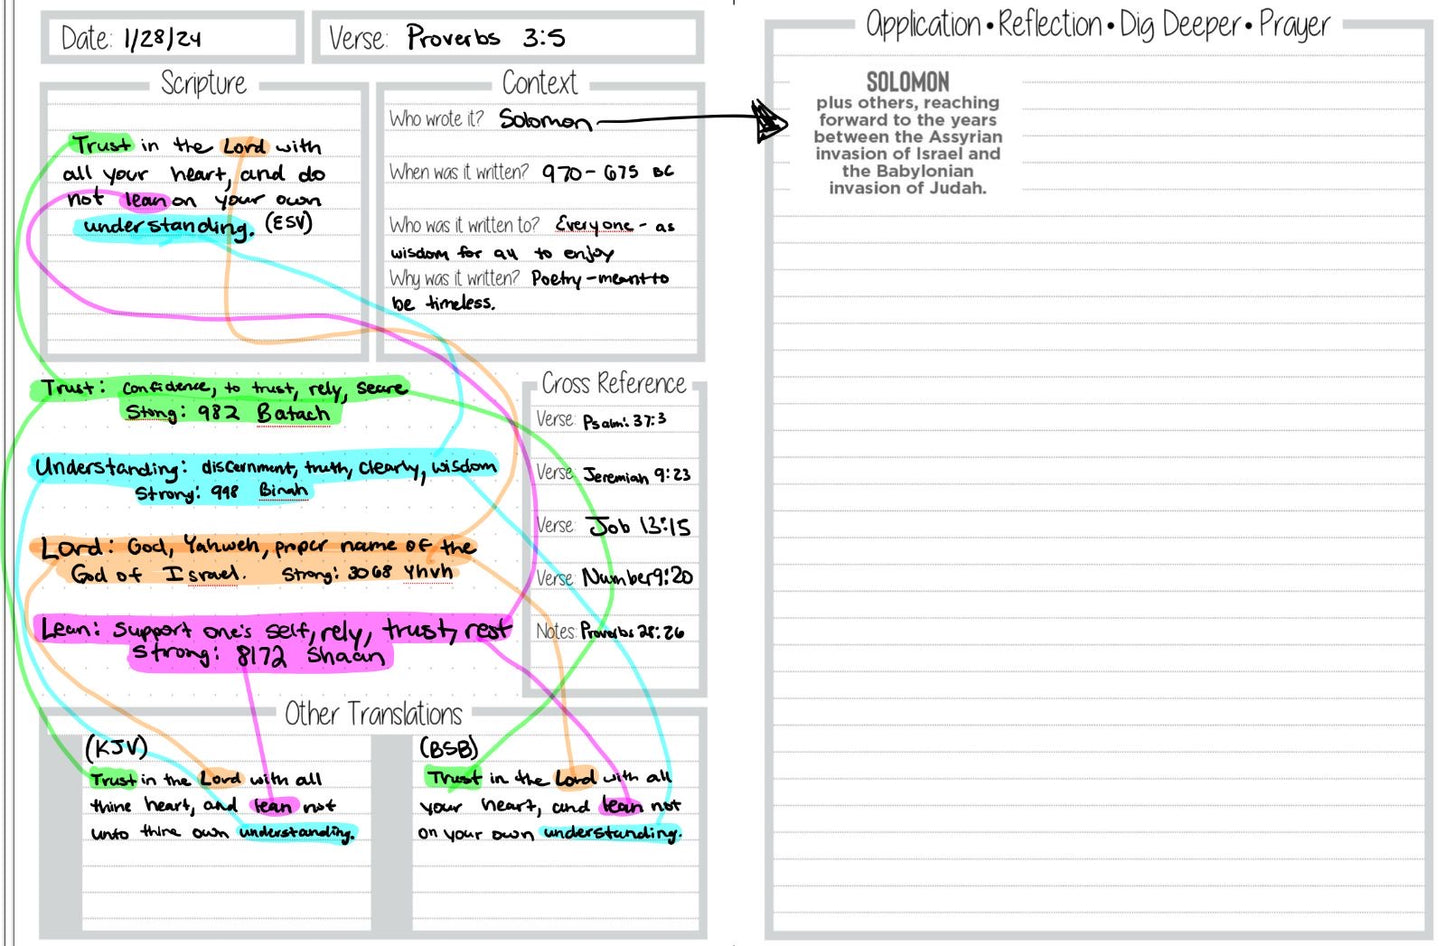 Date: 1/28/24
Verse: Proverbs 3:5
Scripture
Trust in the Lord with
all your heart, and do
not lean on your own
understanding. (ESV)
Context
Who wrote it? Solomon
When was it written? 970 - 675 BC
Who was it written to? Everyone - as
wisdom for all to enjoy
Why was it written? Poetry - meant to
be timeless.
Trust: Confidence, to trust, rely, secure
Stong: 982 Batach
Understanding: discernment, truth, clearly, wisdom
Strong: 998 Binah
Lord: God, Yahweh, proper name of the
God of Israel. Strong: 3068 Yhvh
Lean: Support one's self, rely, trust, rest
Strong: 8172 Shaan
Cross Reference
Verse: Psalm: 37:3
Verse: Jeremiah 9:23
Verse: Job 13:15
Verse: Number 9:20
Notes: Proverbs 28:26
Other Translations
(KJV)
Trust in the Lord with all
thine heart, and lean not
unto thine own understanding.
(BSB)
Trust in the Lord with all
your heart, and lean not
on your own understanding.
Application • Reflection • Dig Deeper • Prayer
SOLOMON
plus others, reaching
forward to the years
between the Assyrian
invasion of Israel and
the Babylonian
invasion of Judah.